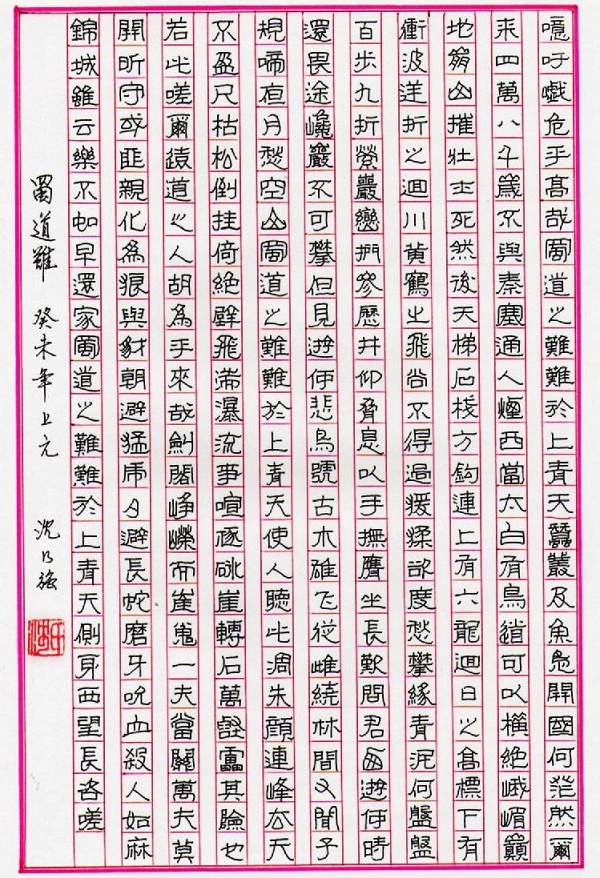 噫吁戲危乎高哉蜀道之難難於上青天蠶叢及魚鳧開國何茫然爾
來四萬八千歲不與秦塞通人煙西當太白有鳥道可以橫絕峨嵋巔
地崩山摧壯士死然後天梯石棧方鈎連上有六龍迴日之高標下有
衝波逆折之迴川黃鶴之飛尚不得過猨猱欲度愁攀緣青泥何盤盤
百步九折縈巖巒捫參歷井仰脅息以手撫膺坐長歎問君西遊何時
還畏途巉巖不可攀但見遊何悲鳥號古木雄飛從雌繞林間又聞子
規啼夜月愁空山蜀道之難難於上青天使人聽此凋朱顏連峰去天
不盈尺枯松倒挂倚絕壁飛湍瀑流爭喧豗砯崖轉石萬壑雷其險也
若此嗟爾遠道之人胡為乎來哉劍閣崢嶸而崔嵬一夫當關萬夫莫
開所守或匪親化為狼與豺朝避猛虎夕避長蛇磨牙吮血殺人如麻
錦城雖云樂不如早還家蜀道之難難於上青天側身西望長咨嗟
蜀道難 癸未年上元 沈乃強